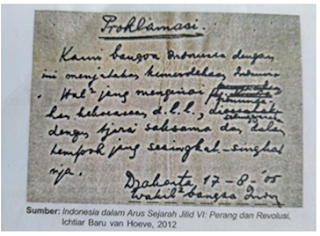 Proklamasi.
Kami bangsa Indonesia dengan
ini menjatakan kemerdekaan Indonesia
. Hal² jang mengenai
kekoeasaan d.l.l., diselenggarakan
dengan tjara saksama dan dalam
tempoh jang sesingkat-singkat
nja.
Djakarta, 17-8-'05
Wakil² bangsa Indon
Sumber: Indonesia dalam Arus Sejarah Jilid VI: Perang dan Revolusi,
Ichtiar Baru van Hoeve, 2012